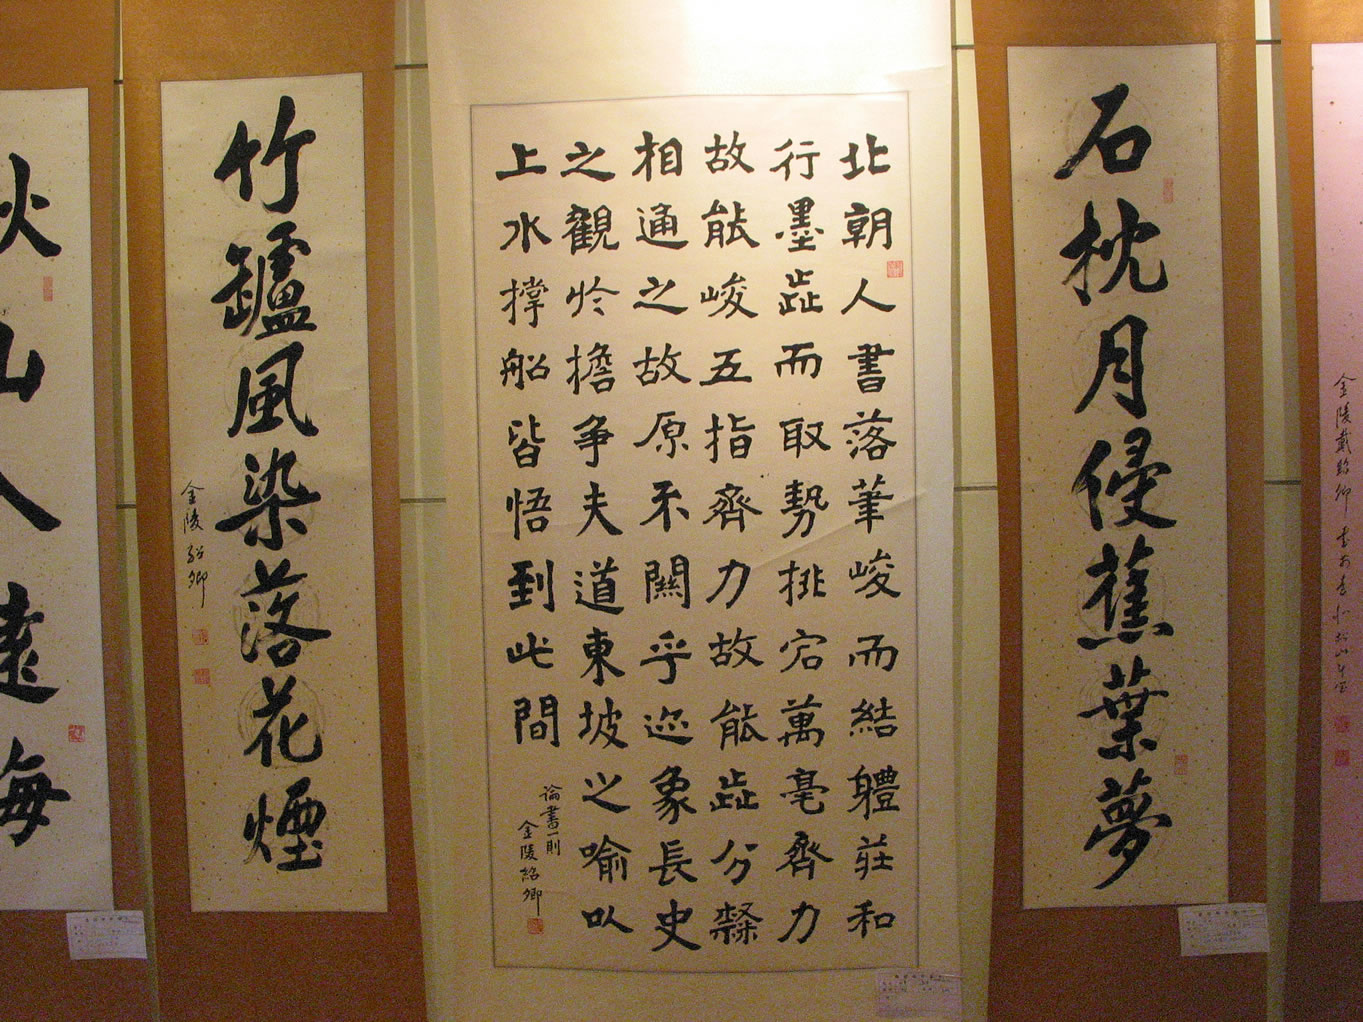 金陵戴紹卿
石枕月侵蕉葉夢
北朝人書落筆峻而結軆莊和
行墨歮而取勢排宕萬毫齊力
故能峻五指齊力故能歮分隸
相通之故原不關乎迹象長史
之觀於擔爭夫道東坡之喻以
上水撐船皆悟到此間
論書一則
金陵紹卿
竹罏風染落花煙
金陵紹卿
秋山人遠海